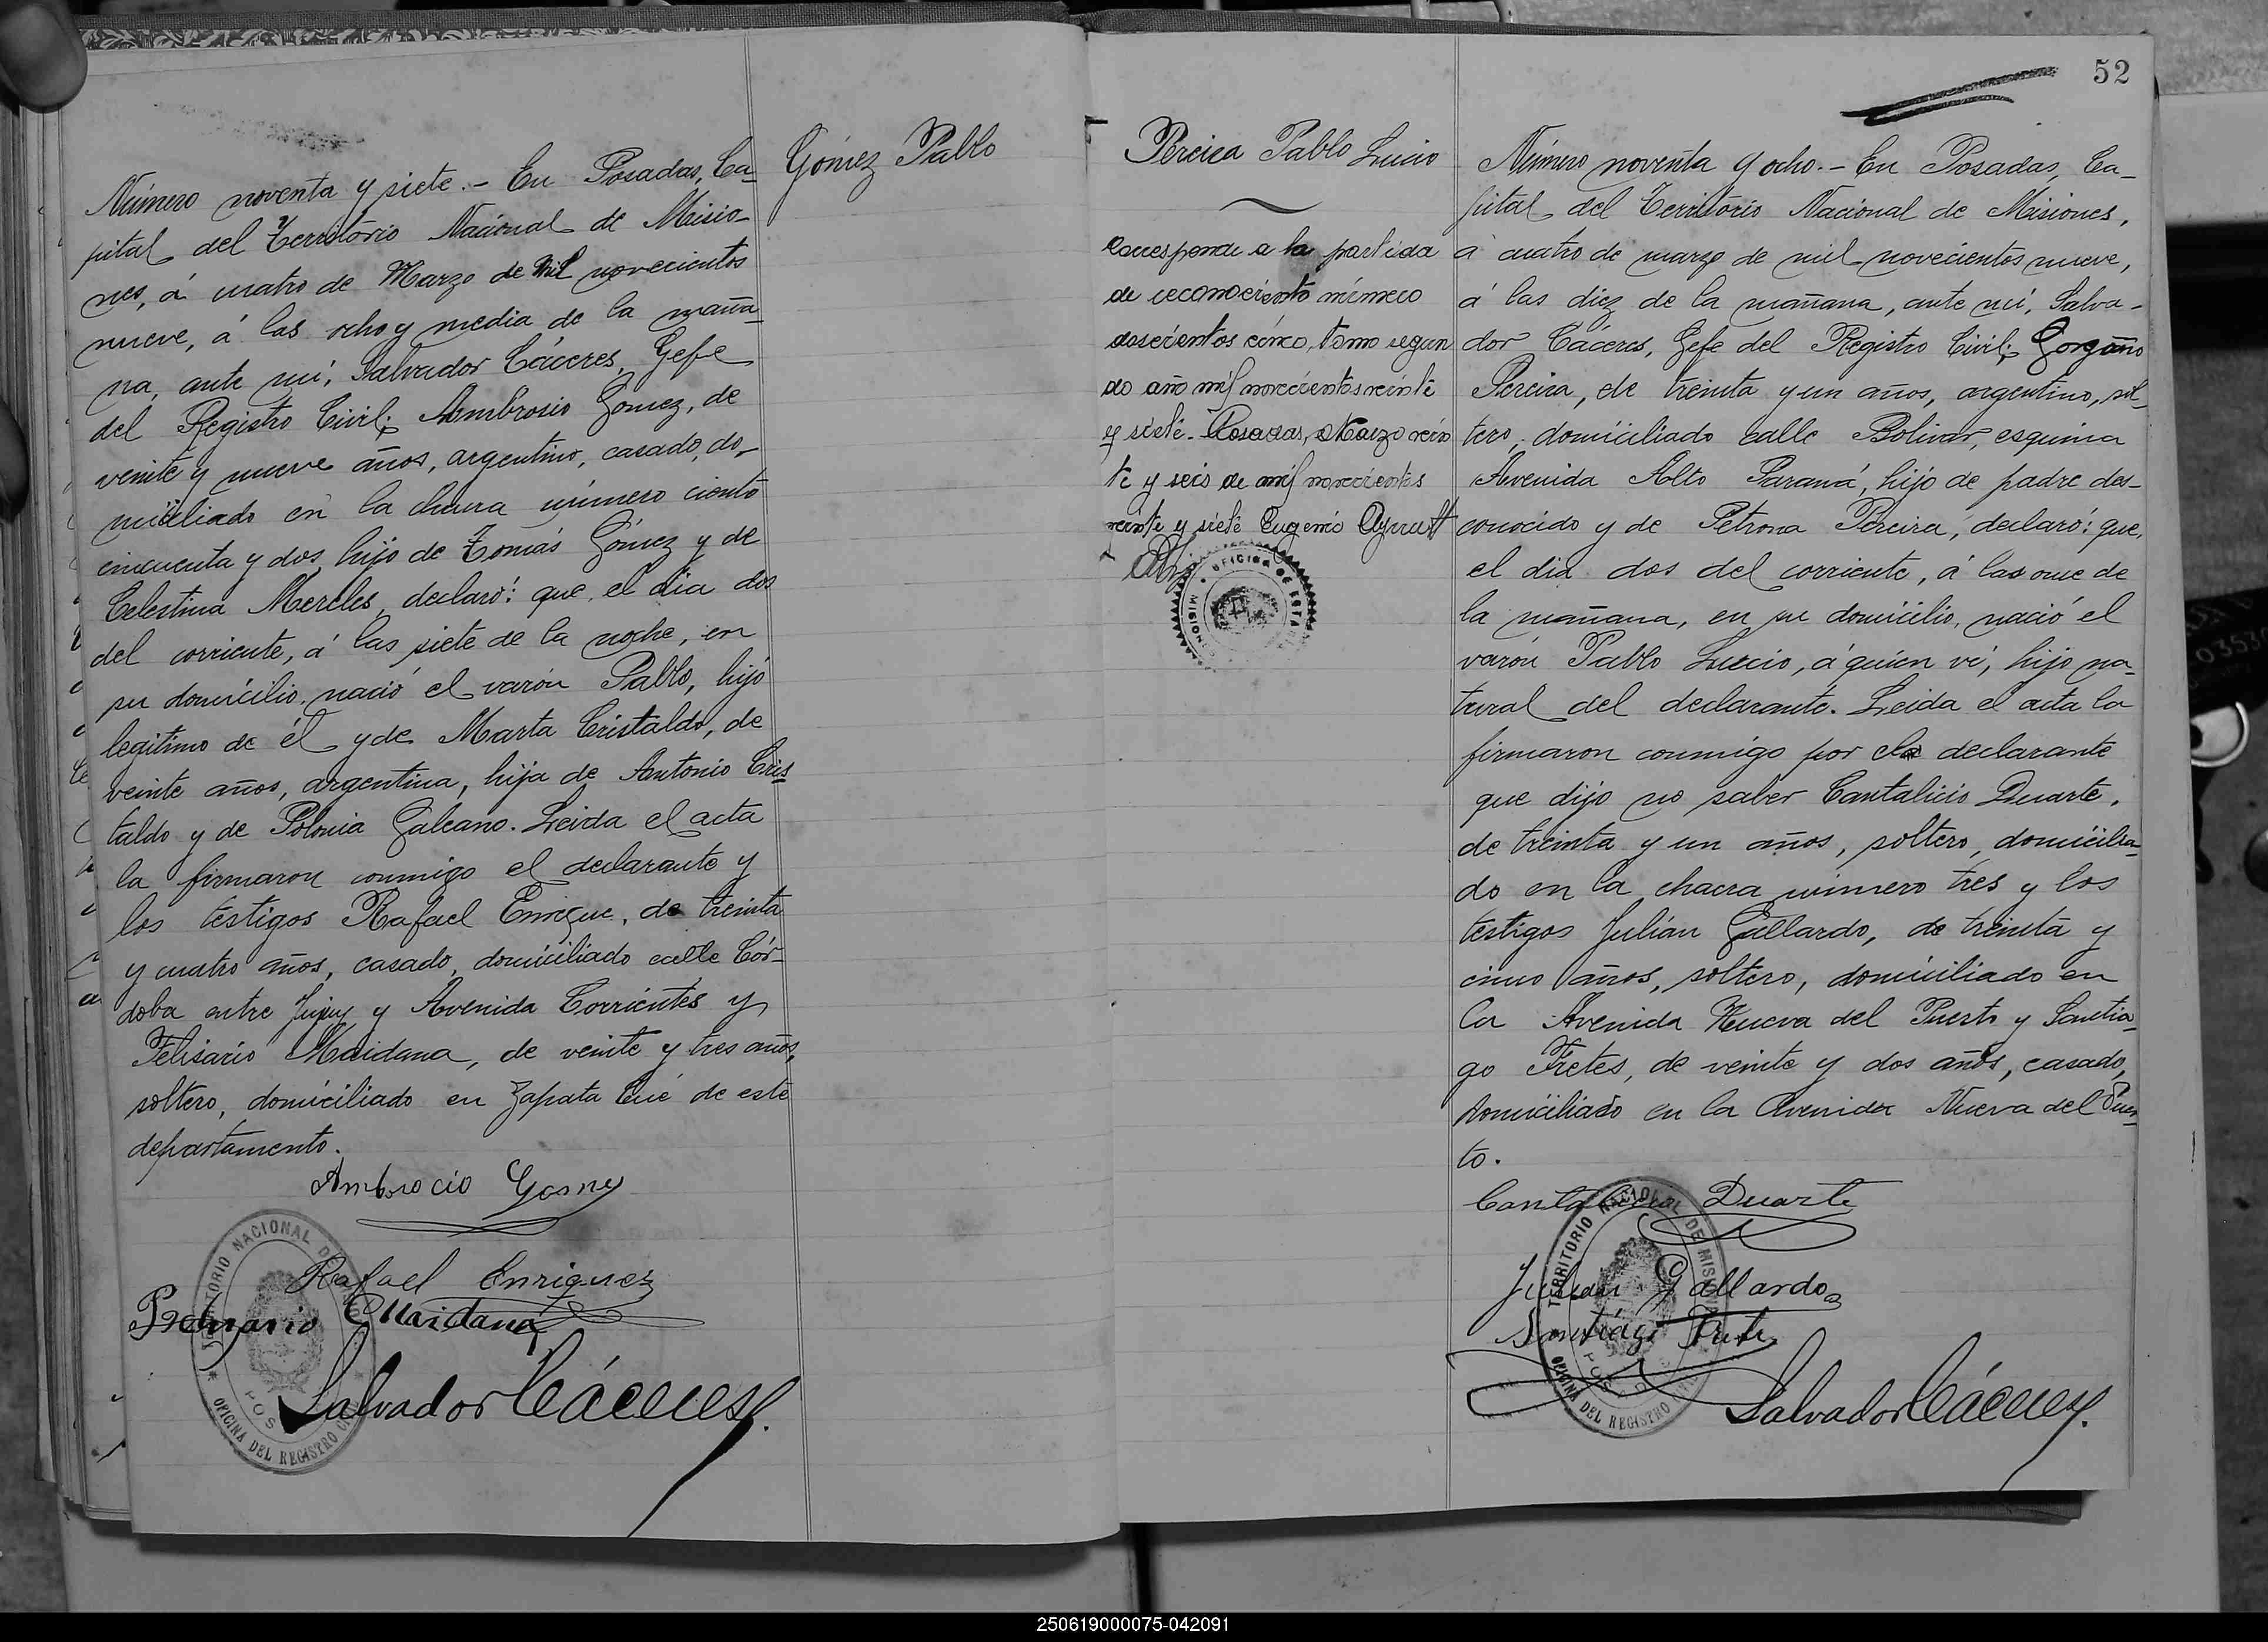 Gómez Pablo
Número noventa y siete.- En Posadas, Ca-
pital del Territorio Nacional de Misio-
nes, á cuatro de Marzo de mil novecientos
nueve, á las ocho y media de la maña-
na, ante mí, Salvador Cáceres, Gefe
del Registro Civil; Ambrosio Gómez, de
veinte y nueve años, argentino, casado, do-
miciliado en la chacra número ciento
cincuenta y dos, hijo de Tomás Gómez y de
Celestina Mereles, declaró: que, el dia dos
del corriente, á las siete de la noche, en
su domicilio, nació el varón Pablo, hijo
legitimo de él y de Marta Cristaldo, de
veinte años, argentina, hija de Antonio Cris-
taldo y de Polonia Galeano. Leida el acta
la firmaron conmigo el declarante y
los testigos Rafael Enrique, de treinta
y cuatro años, casado, domiciliado calle Cór-
doba entre Jujuy y Avenida Corrientes y
Felisario Maidana, de veinte y tres años,
soltero, domiciliado en Zapata Cué de este
departamento.
Ambrocio Gomez
Rafael Enriquez
Maidana
Salvador Cáceres
TERRITORIO NACIONAL DE MISIONES
OFICINA DEL REGISTRO CIVIL
POSADAS
52
Pereira Pablo Lucio
Corresponde a la partida
de reconociento número
doscientos cinco, tomo segun
do año mil novecientos veinte
y siete. Posadas, Marzo vein
te y seis de mil novecientos
veinte y siete Eugenio
OFICINA DE ESTADIS
MISIONES
Número noventa y ocho.- En Posadas, Ca-
pital del Territorio Nacional de Misiones,
á cuatro de marzo de mil novecientos nueve,
á las diez de la mañana, ante mí, Salva-
dor Cáceres, Gefe del Registro Civil; Gorgonio
Pereira, de treinta y un años, argentino, sol-
tero, domiciliado calle Bolivar, esquina
Avenida Alto Paraná, hijo de padre des-
conocido y de Petrona Pereira, declaró: que,
el dia dos del corriente, á las once de
la mañana, en su domicilio, nació el
varón Pablo Lucio, á quien vi, hijo na-
tural del declarante. Leida el acta la
firmaron conmigo por el declarante
que dijo no saber Cantalicio Duarte,
de treinta y un años, soltero, domicilia-
do en la chacra número tres y los
testigos Julián Gallardo, de treinta y
cinco años, soltero, domiciliado en
la Avenida Nueva del Puerto y Santia-
go Fretes, de veinte y dos años, casado,
domiciliado en la Avenida Nueva del Puer-
to.
Cantalicio Duarte
Julian Gallardo
Santiago Frete
Salvador Cáceres
TERRITORIO NACIONAL DE MISIONES
OFICINA DEL REGISTRO CIVIL
POSADAS
250619000075-042091